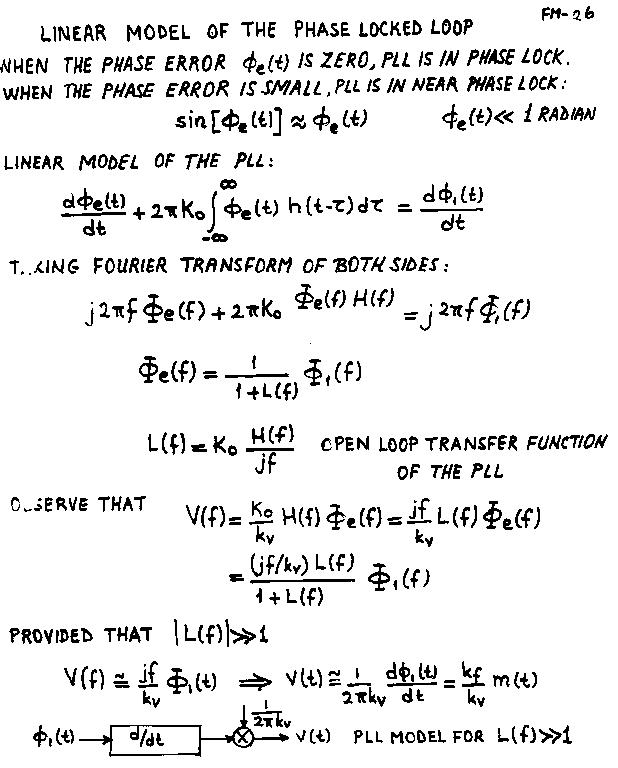 FM-26
LINEAR MODEL OF THE PHASE LOCKED LOOP
WHEN THE PHASE ERROR ϕₑ(t) IS ZERO, PLL IS IN PHASE LOCK.
WHEN THE PHASE ERROR IS SMALL, PLL IS IN NEAR PHASE LOCK:
sin[ϕₑ(t)] ≈ ϕₑ(t)    ϕₑ(t) << 1 RADIAN
LINEAR MODEL OF THE PLL:
dϕₑ(t)/dt + 2πK₀ ∫_{-∞}^{∞} ϕₑ(t) h(t-τ) dτ = dϕ₁(t)/dt
T..KING FOURIER TRANSFORM OF BOTH SIDES:
j2πf Φₑ(f) + 2πK₀ Φₑ(f) H(f) = j2πf Φ₁(f)
Φₑ(f) = 1/(1+L(f)) Φ₁(f)
L(f) = K₀ H(f)/jf    OPEN LOOP TRANSFER FUNCTION
OF THE PLL
O..SERVE THAT    V(f) = K₀/kᵥ H(f) Φₑ(f) = jf/kᵥ L(f) Φₑ(f)
= (jf/kᵥ) L(f)/(1+L(f)) Φ₁(f)
PROVIDED THAT |L(f)| >> 1
V(f) ≅ jf/kᵥ Φ₁(t) ⇒ v(t) ≅ 1/(2πkᵥ) dϕ₁(t)/dt = kf/kᵥ m(t)
1/(2πkᵥ)
ϕ₁(t) → d/dt → ⊗ → v(t)    PLL MODEL FOR L(f) >> 1